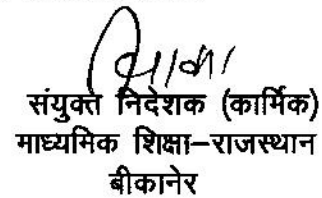 संयुक्त निदेशक (कार्मिक)
माध्यमिक शिक्षा–राजस्थान
बीकानेर